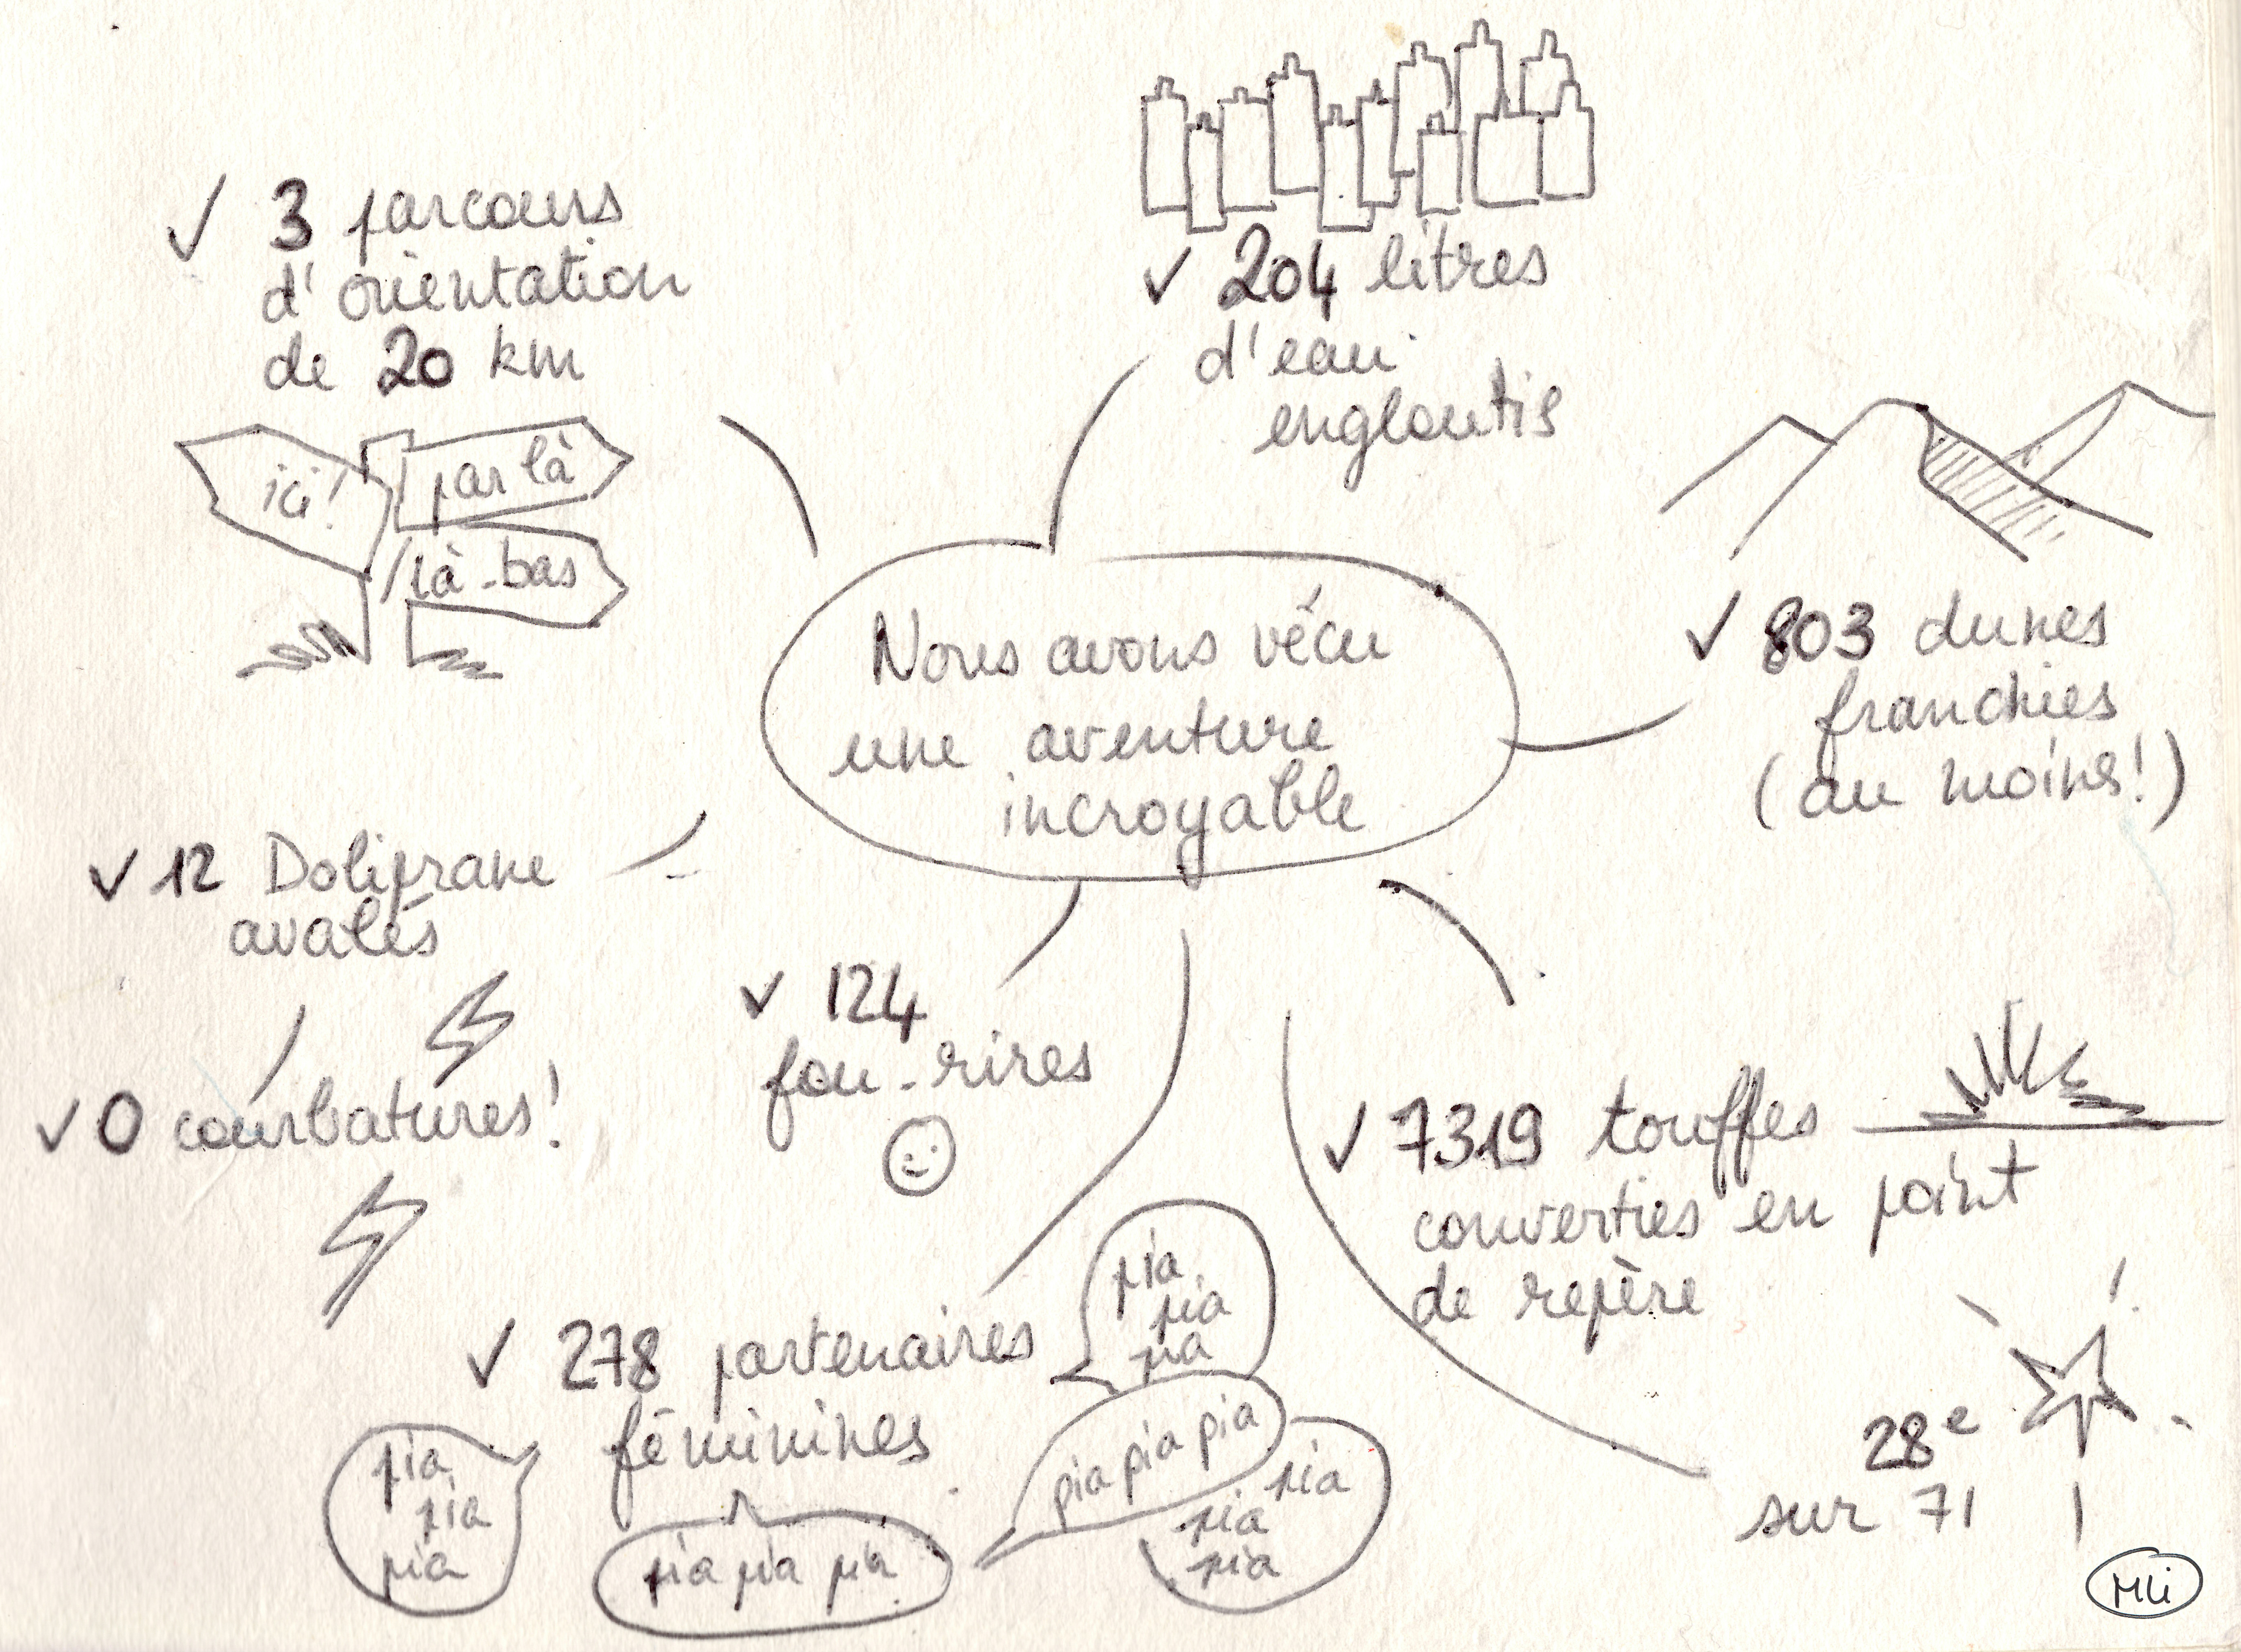 ✓ 3 parcours
d'orientation
de 20 km
ici!
par là
là-bas
✓ 204 litres
d'eau
engloutis
✓ 803 dunes
franchies
(au moins!)
Nous avons vécu
une aventure
incroyable
✓ 12 Doliprane
avalés
✓ 0 courbatures!
✓ 124
fou-rires
✓ 7319 touffes
converties en point
de repère
✓ 278 partenaires
féminines
pia
pia
pia
pia
pia
pia
pia pia pia
pia pia pia
pia
pia
pia
28e
sur 71
MLi